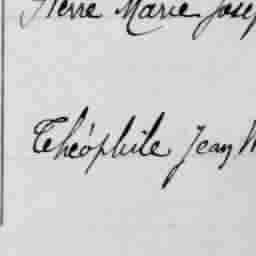 Pierre Marie Josep
Théophile Jean M